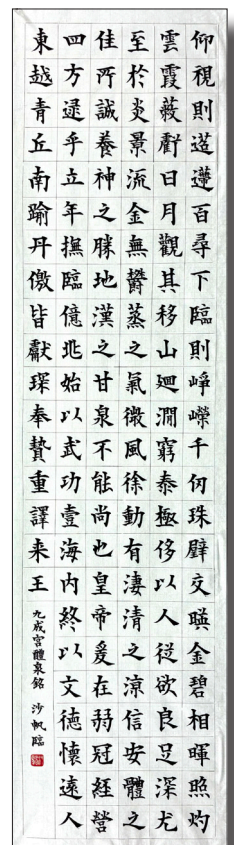 仰視則迢遰百尋下臨則崢嶸千仞珠壁交暎金碧相暉照灼
雲霞蔽虧日月觀其移山迴澗窮泰極侈以人從欲良足深尤
至於炎景流金無欝蒸之氣微風徐動有淒清之涼信安體之
佳所誠養神之勝地漢之甘泉不能尚也皇帝爰在弱冠經營
四方逮乎立年撫臨億兆始以武功壹海內終以文德懷遠人
東越青丘南踰丹儌皆獻琛奉贄重譯来王
九成宮醴泉銘 沙帆臨